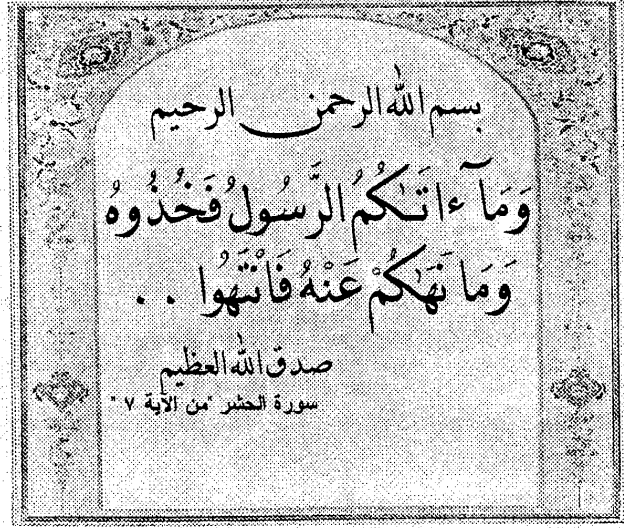 بسم الله الرحمن الرحيم
وَمَآ ءاتَـٰكُمُ الرَّسُولُ فَخُذُوهُ
وَمَا نَهَـٰكُمْ عَنْهُ فَانْتَهُوا . .
صدق الله العظيم
سورة الحشر "من الآية ٧"